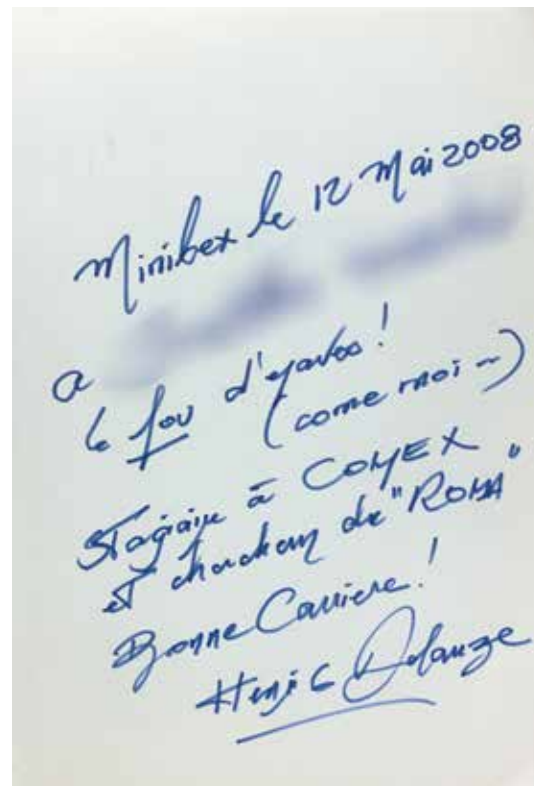 Minibex le 12 Mai 2008
a
le fou d'epaves!
(come moi ~)
Stagiaire à COMEX
et chercheur du "ROMA"
Bonne Carriere!
Henri G Delauze